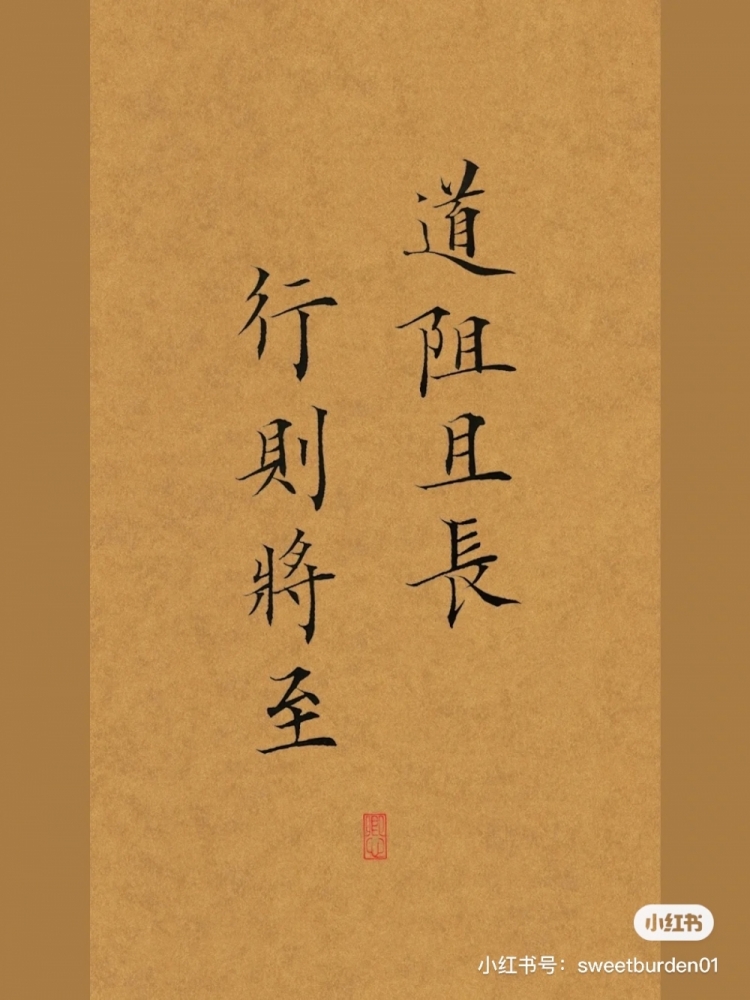 道阻且長
行則將至
小红书
小红书号：sweetburden01